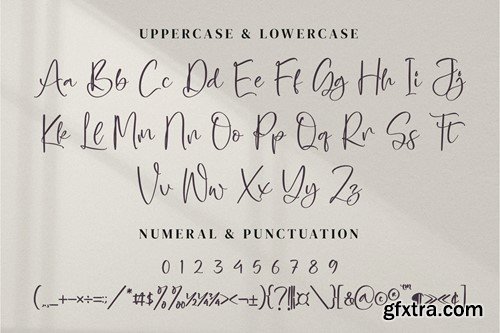 UPPERCASE & LOWERCASE
Aa Bb Cc Dd Ee Ff Gg Hh Ii Jj
Kk Ll Mm Nn Oo Pp Qq Rr Ss Tt
Vv Ww Xx Yy Zz
NUMERAL & PUNCTUATION
0 1 2 3 4 5 6 7 8 9
(.,_+−×÷=:;/*#$%‰½¼¾><¬±){?!¦¤\}[&@©®™¶»«¢]
gfxtra.com